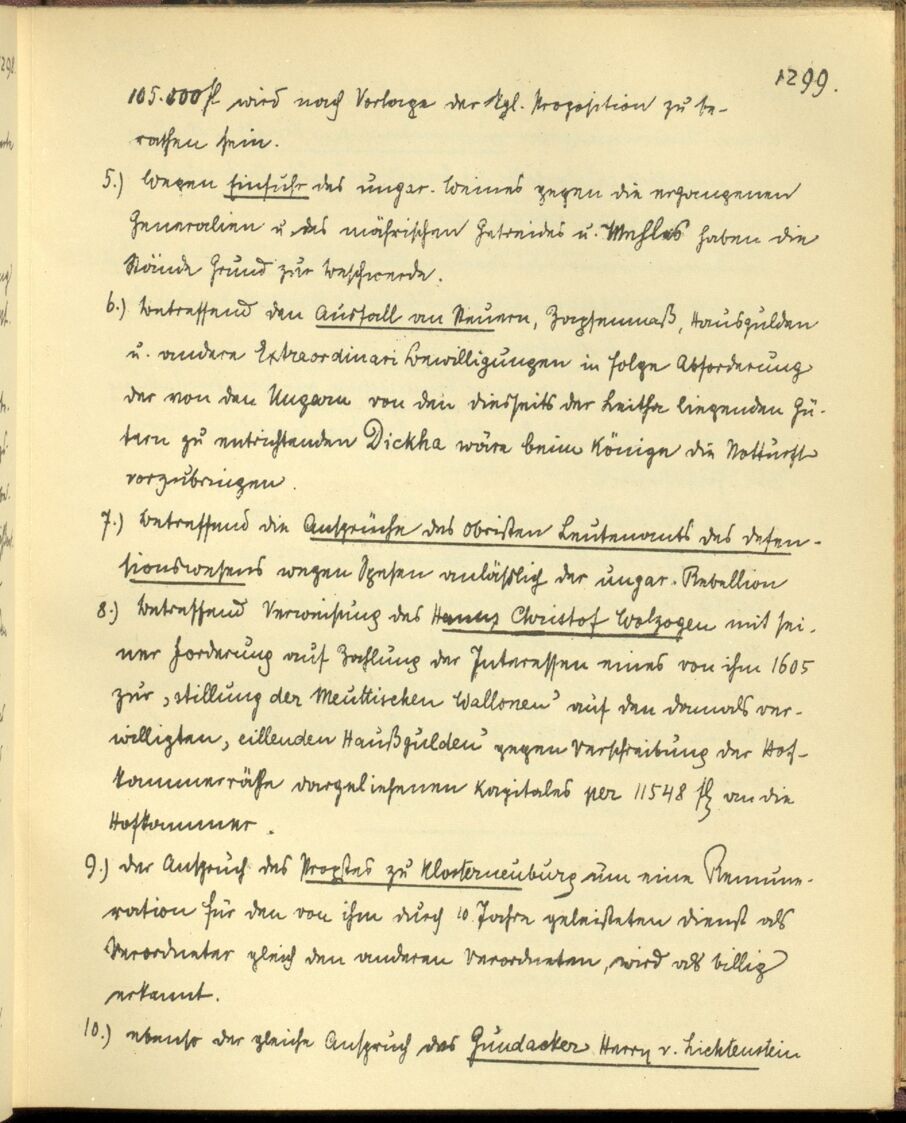 1299.
105.000 fl wird nach Vorlage der Kgl. Proposition zu be-
rathen sein.
5.) Wegen Einfuhr des ungar. Weines gegen die ergangenen
Generalien u. des mährischen Getreides u. Mehles haben die
Stände Grund zur Beschwerde.
6.) Betreffend den Ausfall an Steuern, Zapfenmaß, Hausgulden
u. andere Extraordinari Bewilligungen in folge Abforderung
der von den Ungarn von den diesseits der Leitha liegenden Gü-
tern zu entrichtenden Dickha wäre beim Könige die Notturft
vorzubringen.
7.) Betreffend die Ansprüche des Obristen Leutenamts des defen-
sionswesens wegen Spesen anläßlich der ungar. Rebellion
8.) Betreffend Verweisung des Hanns Christof Wolzogen mit sei-
ner Forderung auf Zahlung der Interessen eines von ihm 1605
zur „stillung der Meuttischen Wallonen" auf den damals ver-
willigten „eillenden Haußgulden" gegen Verschreibung der Hof-
kammerräthe dargeliehenen Kapitales per 11548 fl an die
Hofkammer.
9.) der Anspruch des Propstes zu Klosterneuburg um eine Remune-
ration für den von ihm durch 10 Jahre geleisteten Dienst als
Verordneter gleich den anderen Verordneten, wird als billig
erkannt.
10.) ebenso der gleiche Anspruch des Gundacker Herrn v. Lichtenstein